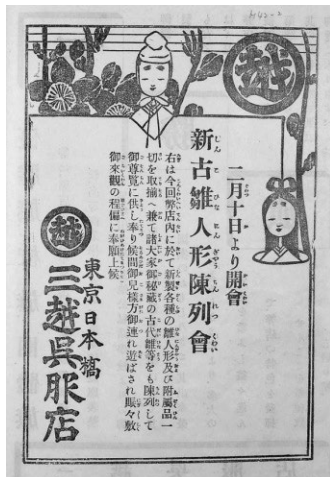 二月十日より開會
新古雛人形陳列會
右は今回弊店內に於て新製各種の雛人形及び附屬品一
切を取揃へ兼て諸大家御秘藏の古代雛等をも陳列して
御尊覽に供し奉り候間御兒樣方御連れ遊ばされ賑々敷
御來觀の程偏に奉願上候
東京日本橋
越 三越吳服店
越